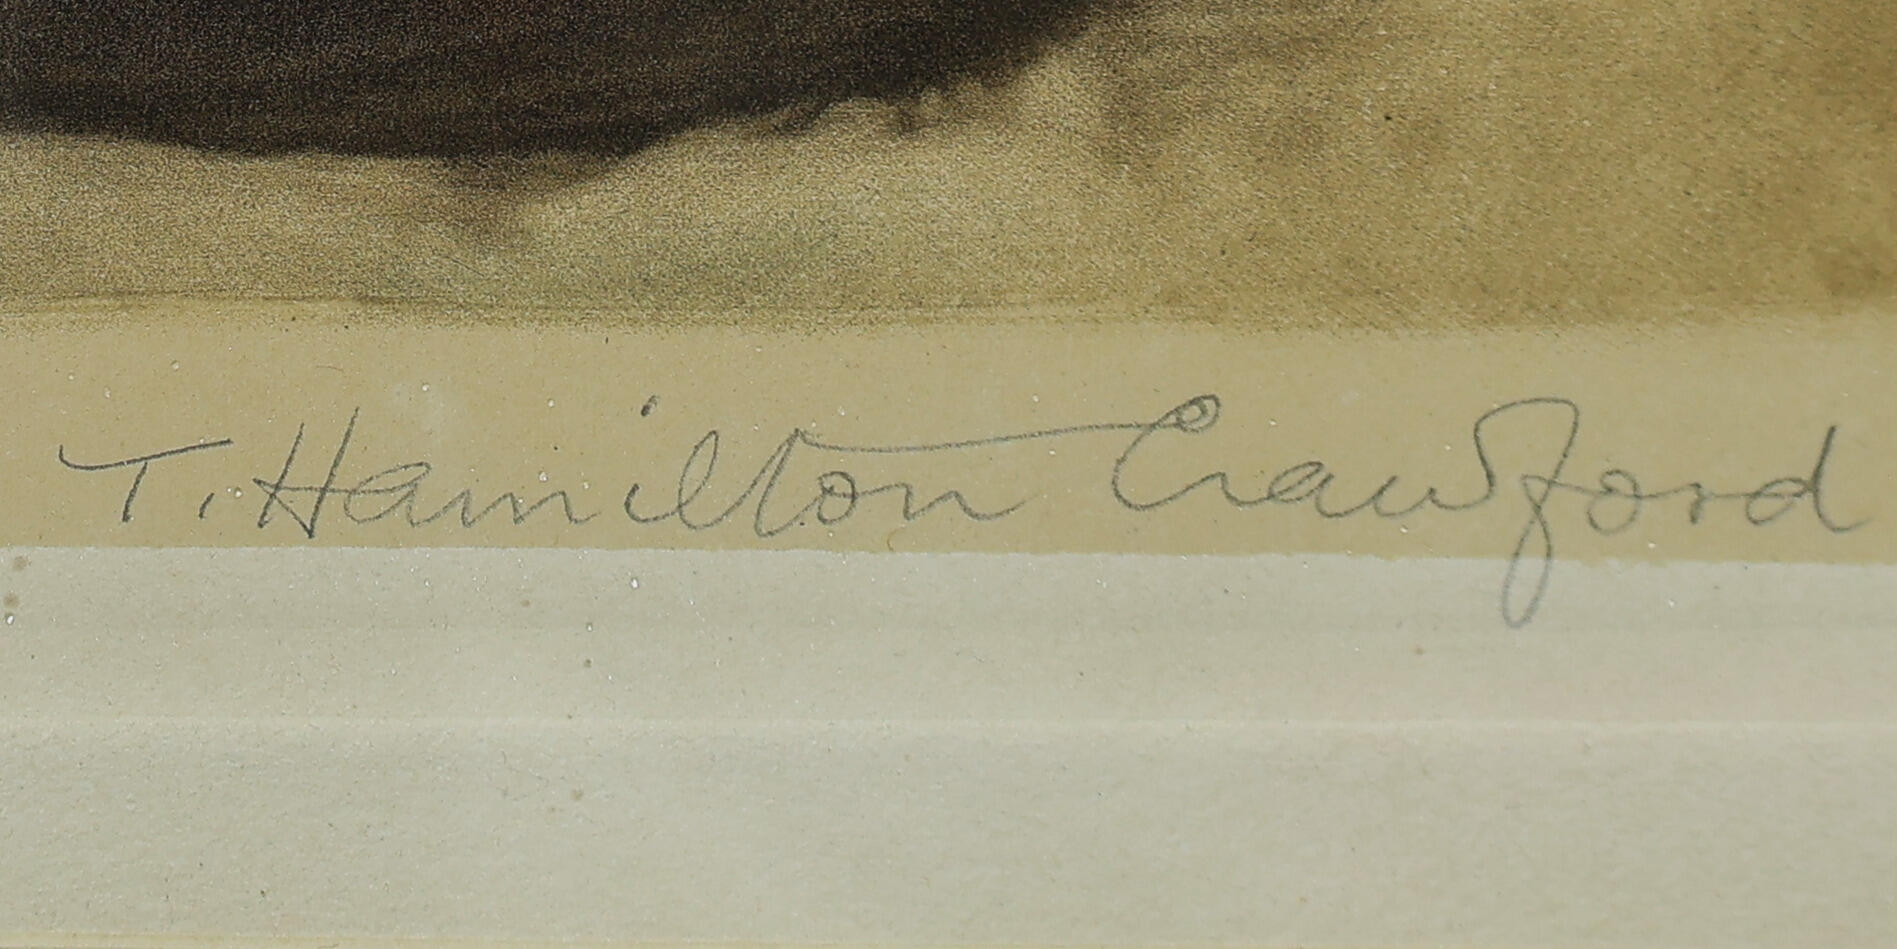 T. Hamilton Crawford